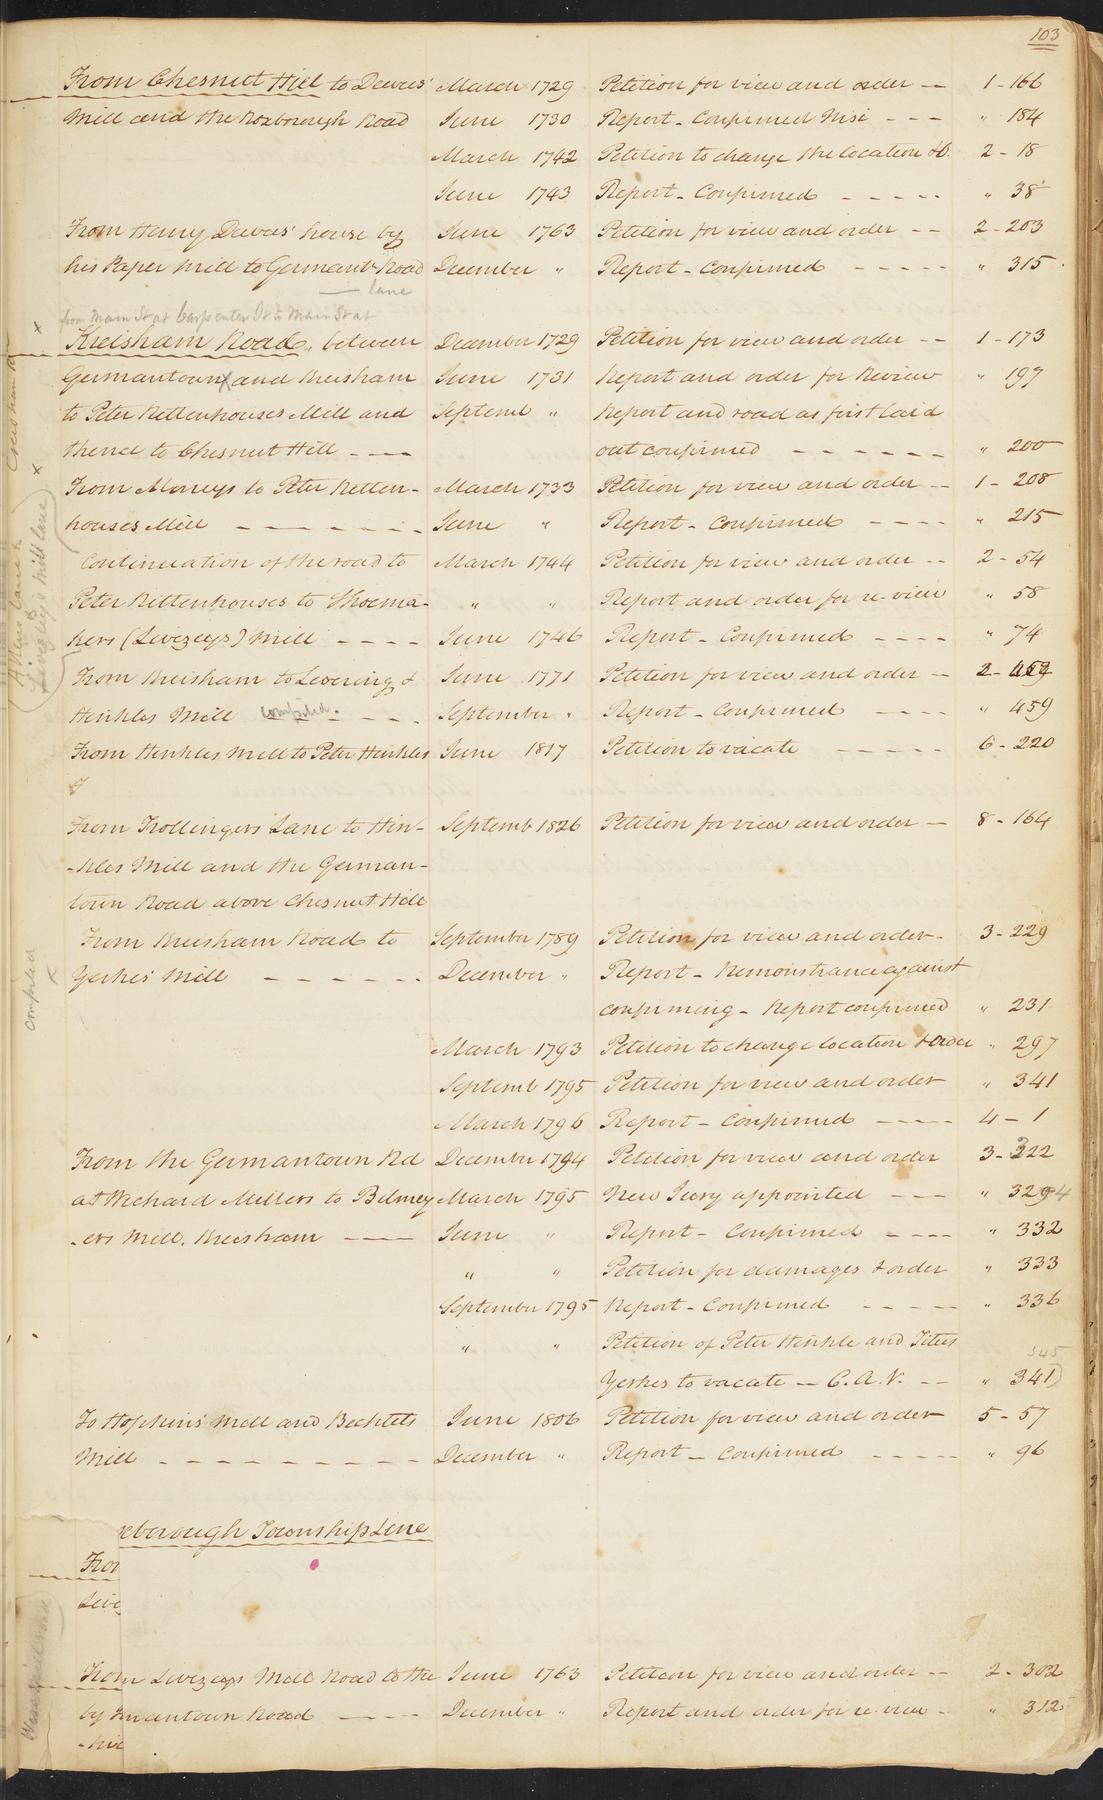 103
From Chesnut Hill to Dewees' March 1729 Petition for view and order -- 1-166
Mill and the Roxborough Road June 1730 Report - Confirmed Nisi - - - " 184
March 1742 Petition to change the location &c. 2-18
June 1743 Report - Confirmed - - - - - " 38
From Henry Dewees' house by June 1763 Petition for view and order -- 2-203
his Paper Mill to Germant. Road December " Report - Confirmed - - - - - " 315
lane
from Main St at Carpenter St to Main St at
Kreisham Road, between December 1729 Petition for view and order -- 1-173
Germantown x and Kreisham June 1731 Report and order for Review " 197
to Peter Rittenhouses Mill and Septemb " Report and road as first laid
thence to Chesnut Hill - - - out confirmed - - - - - - " 200
From Morreys to Peter Ritten- March 1733 Petition for view and order -- 1-208
houses Mill - - - - - - - June " Report - Confirmed - - - - " 215
Continuation of the road to March 1744 Petition for view and order -- 2-54
Peter Rittenhouses to Shoema- " " Report and order for re-view " 58
kers (Livezeys) Mill - - - - June 1746 Report - Confirmed - - - - " 74
From Kreisham to Levering & June 1771 Petition for view and order -- 2-
Heinkles Mill compiled. - - - September " Report - Confirmed - - - - " 459
From Henkles Mill to Peter Henkles June 1817 Petition to vacate - - - - - 6-220
From Trollingers Lane to Hin- Septemb 1826 Petition for view and order - 8-164
-kles Mill and the German-
town Road above Chesnut Hill
From Kreisham Road to September 1789 Petition for view and order - 3-229
Yerkes' Mill - - - - - - December " Report - Remonstrance against
confirming - Report confirmed " 231
compiled
March 1793 Petition to change location & order " 297
Septemb 1795 Petition for view and order " 341
March 1796 Report - Confirmed - - - - 4-1
From the Germantown Rd December 1794 Petition for view and order 3-322
at Wichard Millers to Bilmey March 1795 New Jury appointed - - - " 3294
-ers Mill. Kreisham - - - June " Report - Confirmed - - - - " 332
" " Petition for damages & order " 333
September 1795 Report - Confirmed - - - - - " 336
" " Petition of Peter Hinkle and Titus
345
Yerkes to vacate - C.A.V. -- " 341
To Hopkins' Mill and Bechtels June 1806 Petition for view and order 5-57
Mill - - - - - - - - - December " Report - Confirmed - - - - - " 96
xborough Township Line
From
Live
From Livezeys Mill Road to the June 1763 Petition for view and order -- 2-302
by mantown Road - - - - December " Report and order for re-view - " 312